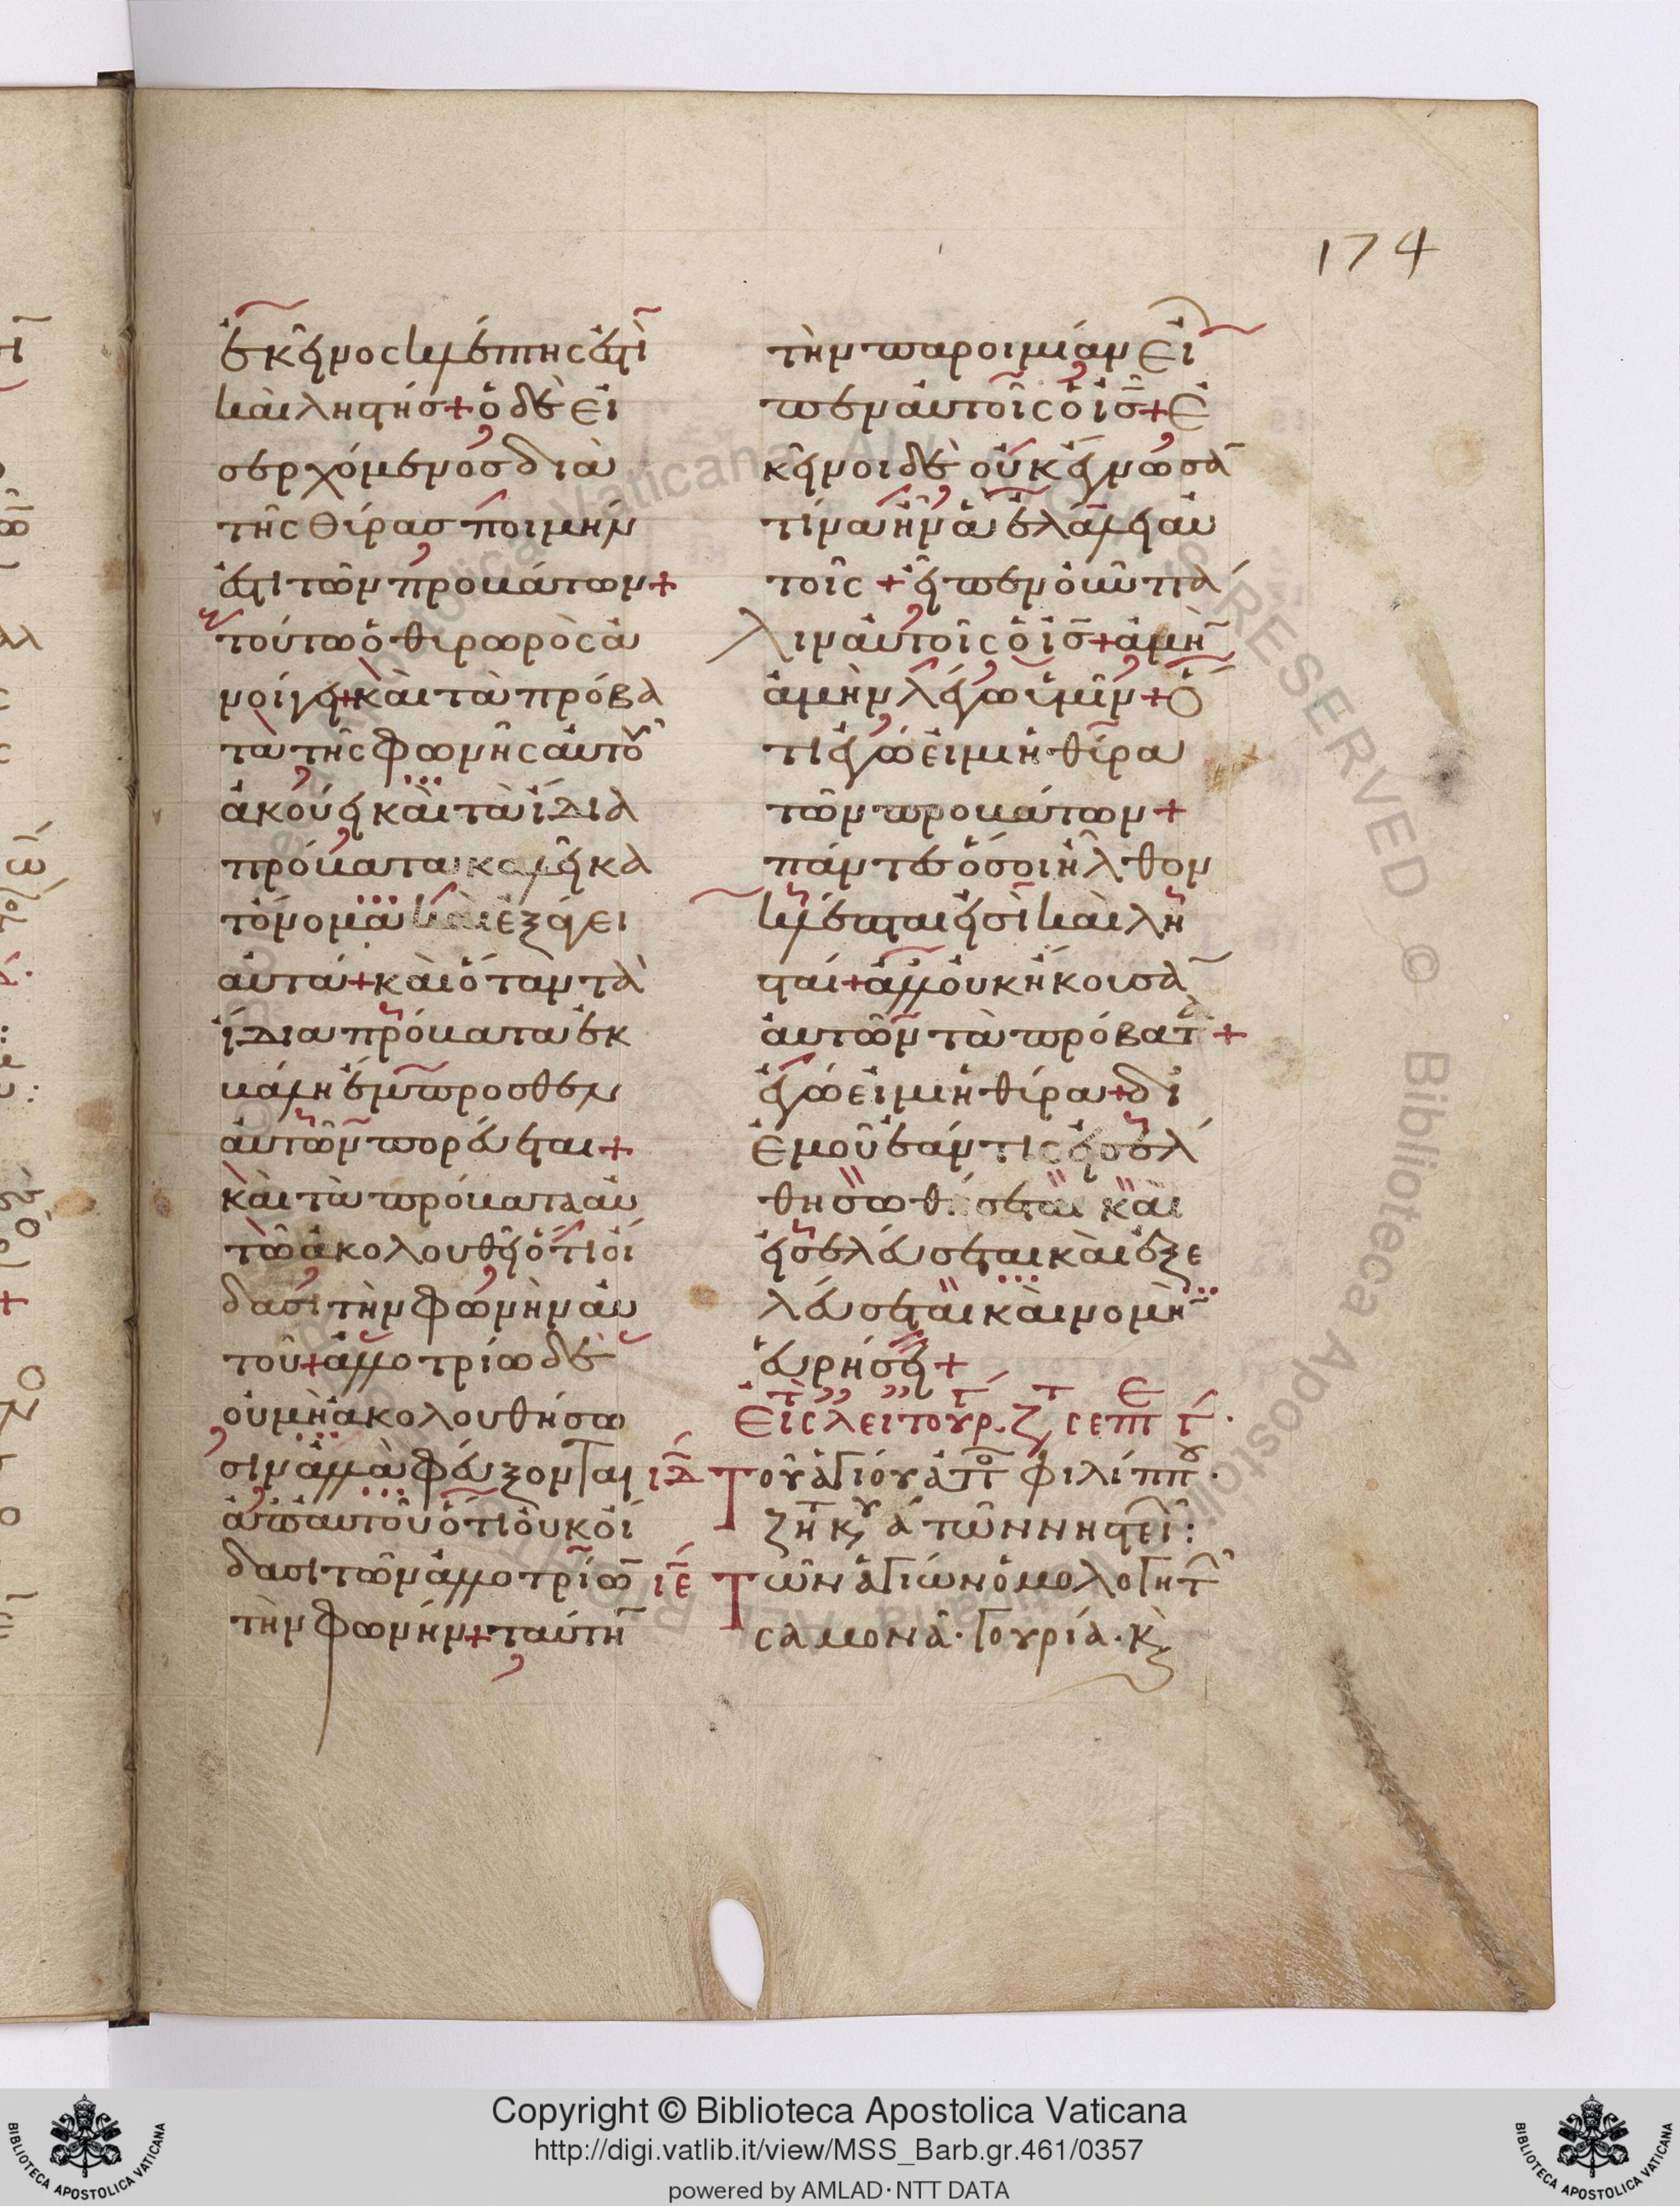 174
ἐκεῖνος κλέπτης ἐστὶ
καὶ ληστής + ὁ δὲ εἰ
σερχόμενος διὰ
τῆς θύρας ποιμήν
ἐστι τῶν προβάτων +
τούτω ὁ θυρωρὸς ἀ
νοίγει + καὶ τὰ πρόβα
τα τῆς φωνῆς αὐτοῦ
ἀκούει καὶ τὰ ἴδια
πρόβατα καλεῖ κα
τ' ὄνομα καὶ ἐξάγει
αὐτά + καὶ ὅταν τὰ
ἴδια πρόβατα ἐκ
βάλη ἔμπροσθεν
αὐτῶν πορεύεται +
καὶ τὰ πρόβατα αὐ
τῶ ἀκολουθεῖ ὅτι οἴ
δασι τὴν φωνὴν αὐ
τοῦ + ἀλλοτρίω δὲ
οὐ μὴ ἀκολουθήσω
σιν ἀλλὰ φεύξονται
ἀπ' αὐτοῦ ὅτι οὐκ οἴ
δασι τῶν ἀλλοτρίω̄
τὴν φωνήν + ταύτη̄
τὴν παροιμίαν εἶ
πεν αὐτοῖς ὁ ις̄ + ἐ
κεῖνοι δὲ οὐκ ἔγνωσᾱ
τίνα ἦν ἃ ἐλάλει αὐ
τοῖς + εἶπεν οὖν πά
λιν αὐτοῖς ὁ ις̄ + ἀμὴ̄
ἀμὴν λέγω ὑμῖν + ὅ
τι ἐγώ εἰμι ἡ θύρα
τῶν προβάτων +
πάντες ὅσοι ἦλθον
κλέπται εἰσὶ καὶ λη
σταί + ἀλλ' οὐκ ἤκουσᾱ
αὐτῶν τὰ πρόβατα +
ἐγώ εἰμι ἡ θύρα + δι'
ἐμοῦ ἐάν τις εἰσέλ
θη σωθήσεται καὶ
εἰσελεύσεται καὶ ἐξε
λεύσεται καὶ νομὴ̄
εὑρήσει +
Εἰς λειτουρ. ζ, σεπτ ΐ.
ιδ̄ Τοῦ ἁγίου ἀπο φιλίππου.
ζητ κυ ά τῶν νηστει:
ιε̄ Τῶν ἁγίων ὁμολογητ
σαμονᾶ. γουρία. κ
Copyright © Biblioteca Apostolica Vaticana
http://digi.vatlib.it/view/MSS_Barb.gr.461/0357
powered by AMLAD·NTT DATA
BIBLIOTECA APOSTOLICA VATICANA
BIBLIOTECA APOSTOLICA VATICANA